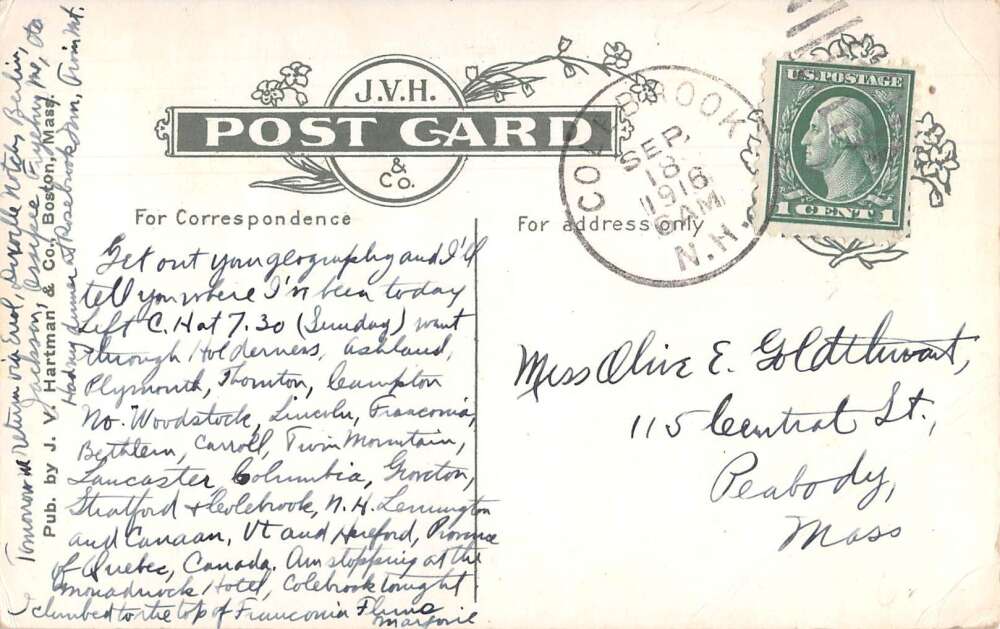 J.V.H.
POST CARD
& Co.
For Correspondence
For address only
COLEBROOK
SEP
18
1916
6 AM
N.H.
U.S. POSTAGE
1 CENT 1
Get out your geography and I'll
tell you where I've been today
Left C.H at 7.30 (Sunday) went
through Holderness, Ashland,
Plymouth, Thornton, Campton
No. Woodstock, Lincoln, Franconia,
Bethlem, Carroll, Twin Mountain,
Lancaster Columbia, Groveton,
Stratford & Colebrook, N.H. Lemington
and Canaan, Vt and Hereford, Province
of Quebec, Canada. Am stopping at the
Monadnock Hotel, Colebrook tonight
I climbed to the top of Franconia Flume
Marjorie
Miss Olive E. Goldthwait,
115 Central St.,
Peabody,
Mass
Tomorrow return via Errol, Dixville Notch, Berlin,
Jackson, Ossipee Fryeburg Me, etc
Pub. by J. V. Hartman & Co., Boston, Mass.
Had my dinner at Rosebrook Inn, Twin Mt.